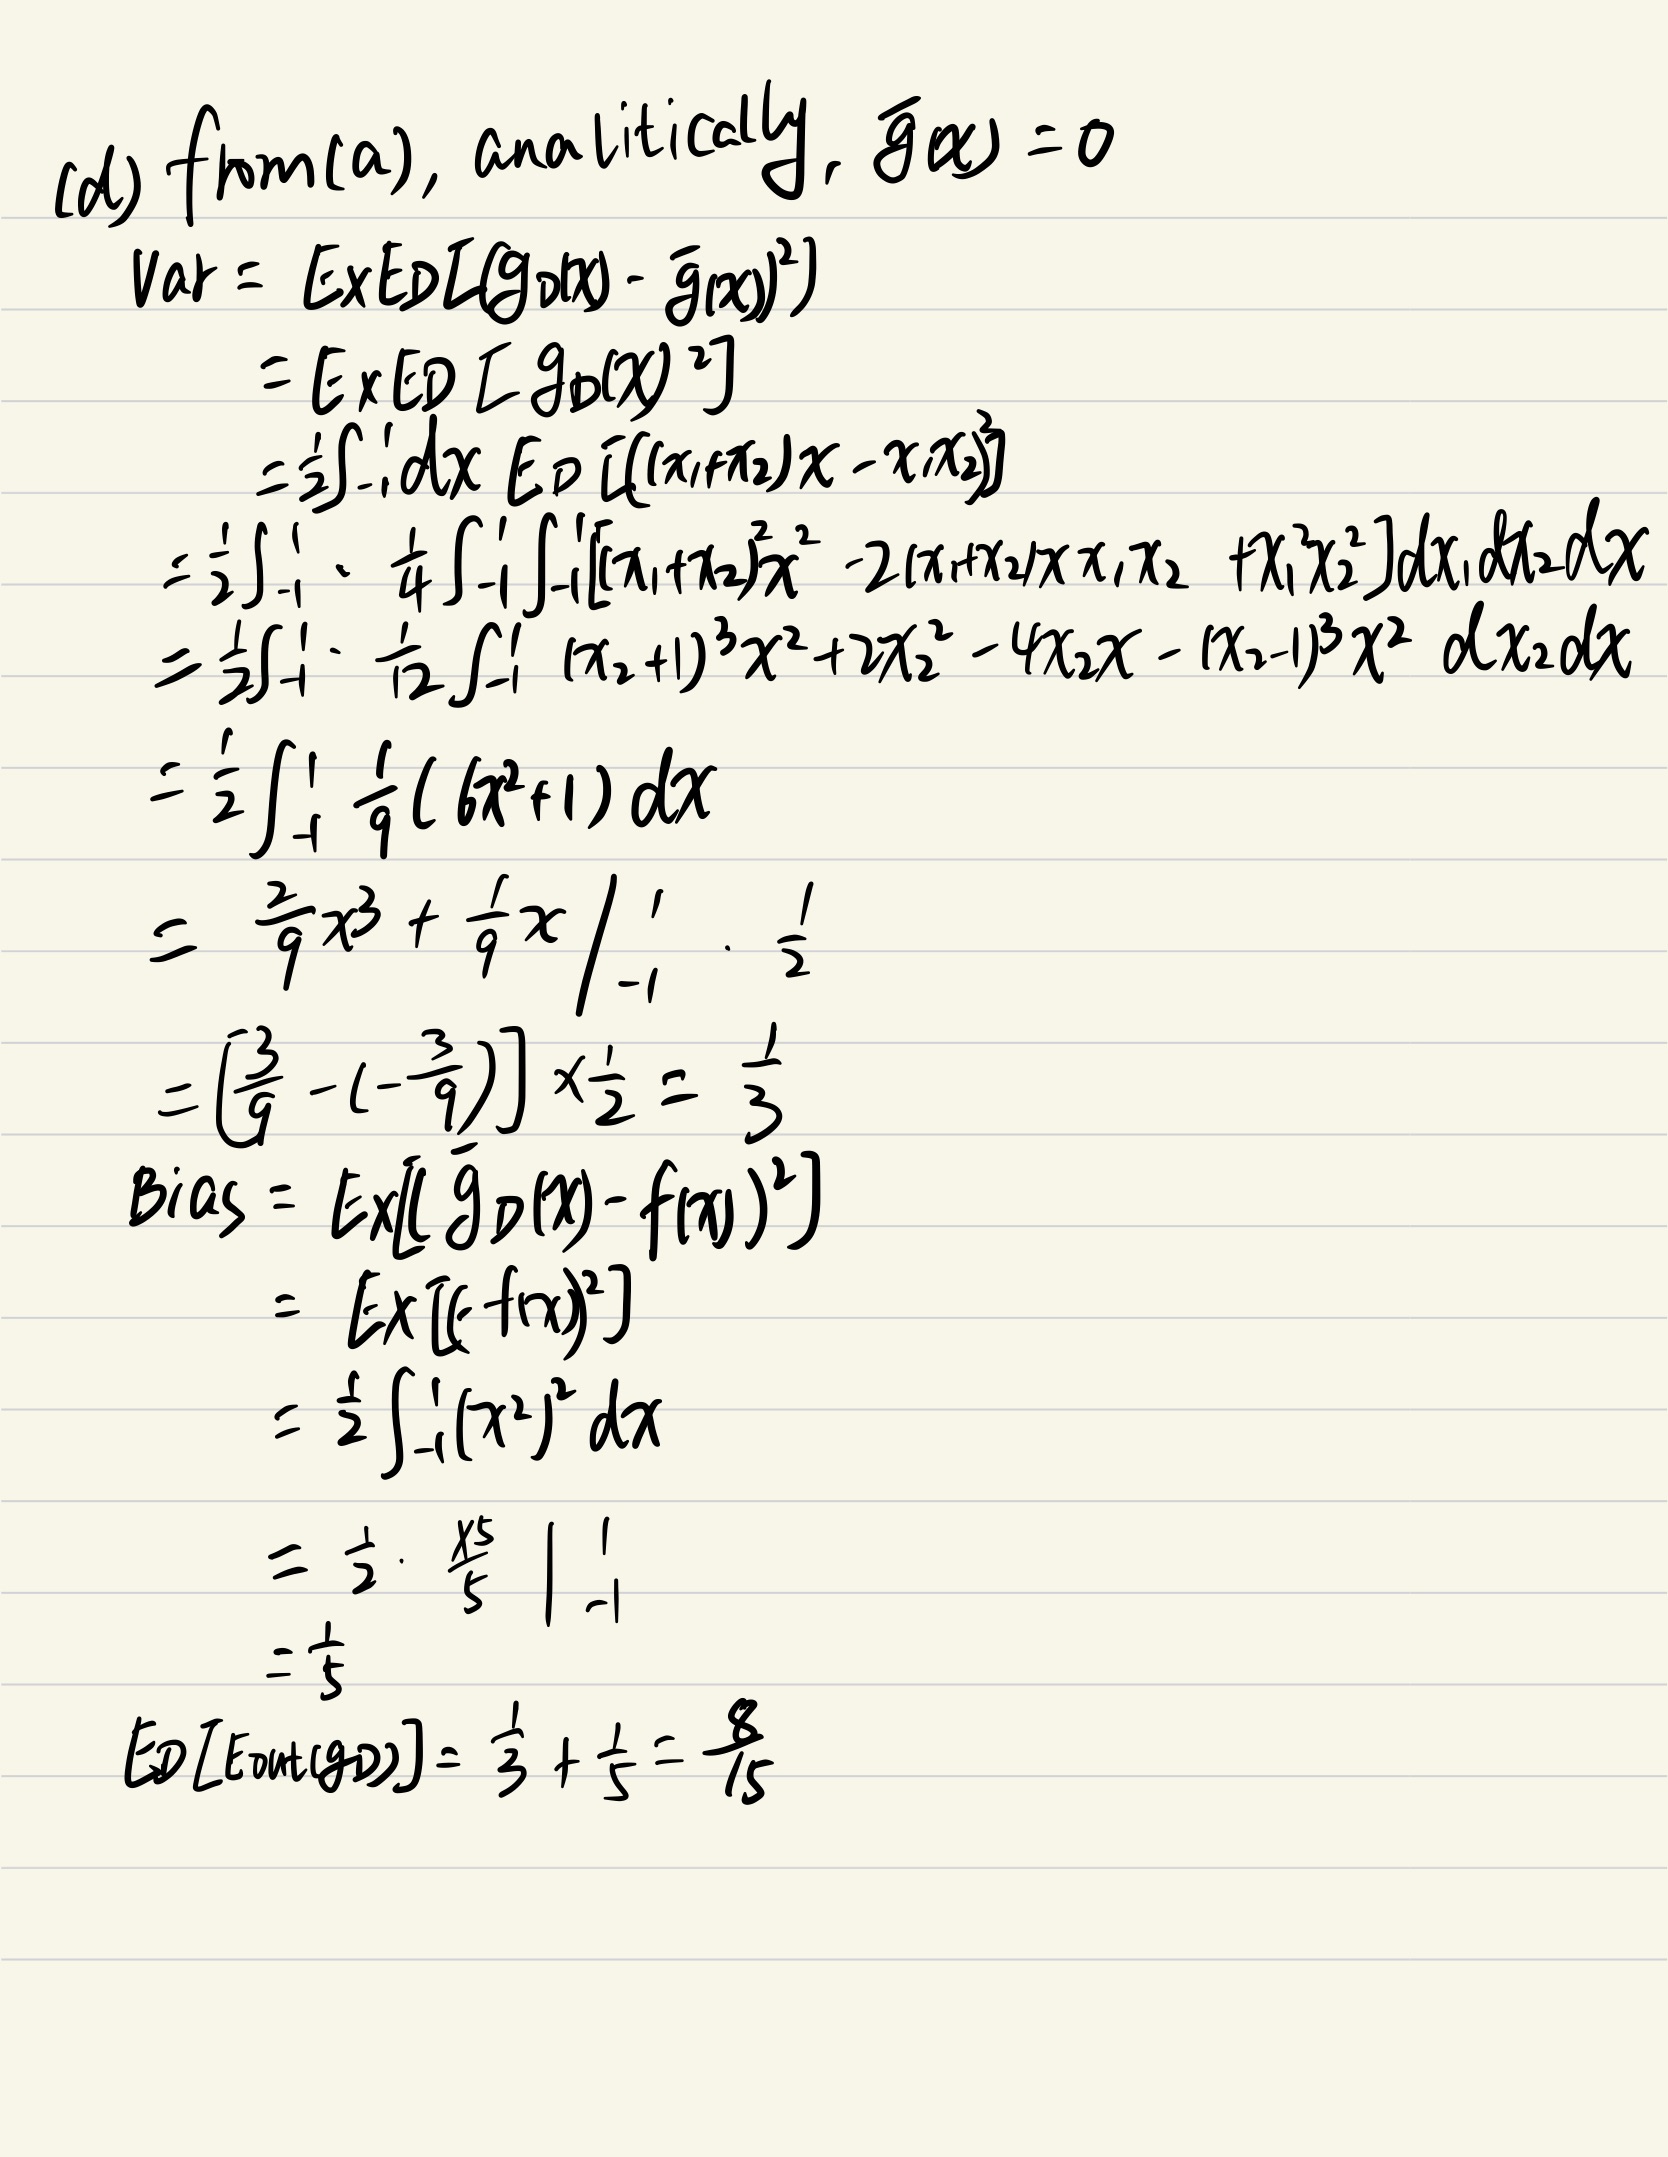 (d) from(a), analitically, ḡ(x) = 0
Var = ExED[(gD(x) - ḡ(x))²]
= ExED [gD(x)²]
= 1/2 ∫₋₁¹ dx ED [((x₁+x₂)x - x₁x₂)²]
= 1/2 ∫₋₁¹ · 1/4 ∫₋₁¹ ∫₋₁¹ [(x₁+x₂)²x² - 2(x₁+x₂)x x₁x₂ + x₁²x₂²] dx₁dx₂dx
= 1/2 ∫₋₁¹ · 1/12 ∫₋₁¹ (x₂+1)³x² + 2x₂² - 4x₂x - (x₂-1)³x² dx₂dx
= 1/2 ∫₋₁¹ 1/9 (6x²+1) dx
= 2/9 x³ + 1/9 x |₋₁¹ · 1/2
= [3/9 - (-3/9)] × 1/2 = 1/3
Bias = Ex[(ḡD(x) - f(x))²]
= Ex[(-f(x))²]
= 1/2 ∫₋₁¹ (x²)² dx
= 1/2 · x⁵/5 |₋₁¹
= 1/5
ED[Eout(gD)] = 1/3 + 1/5 = 8/15